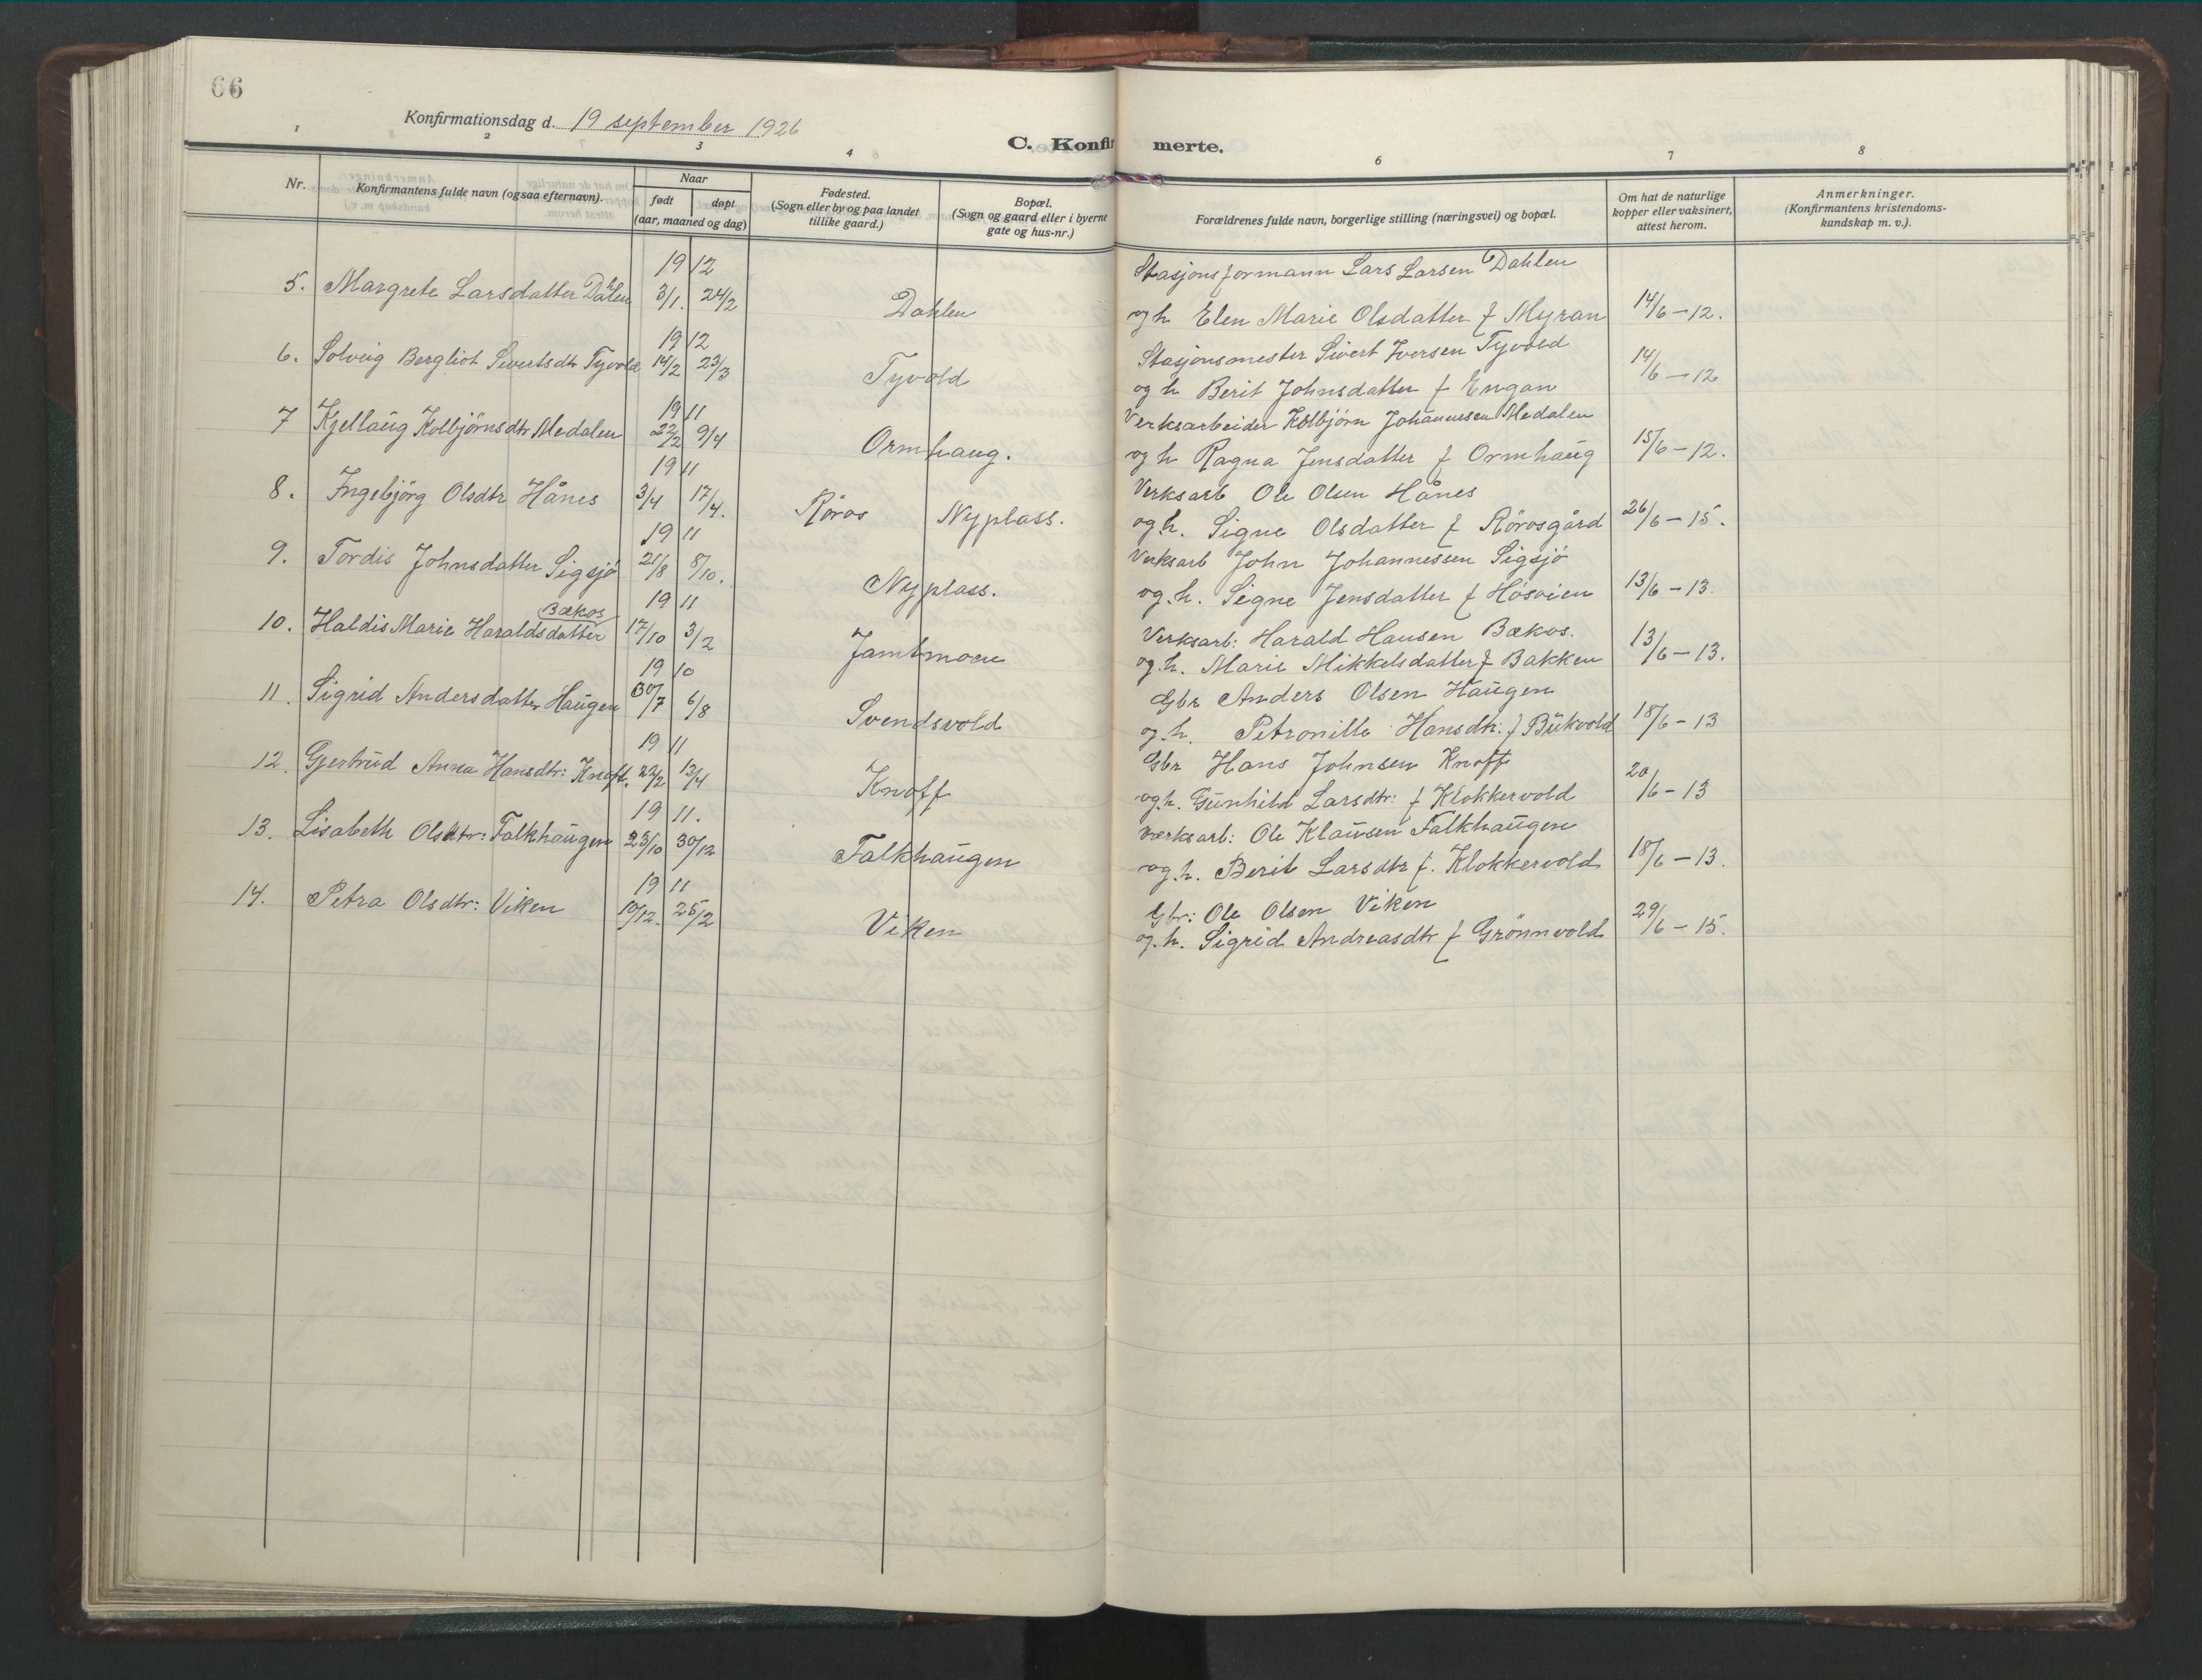 66
Konfirmationsdag d. 19 september 1926
C. Konfirmerte.
1 2 3 4 6 7 8
Nr.
Konfirmantens fulde navn (ogsaa efternavn).
Naar
født døpt
(aar, maaned og dag)
Fødested.
(Sogn eller by og paa landet
tillike gaard.)
Bopæl.
(Sogn og gaard eller i byerne
gate og hus-nr.)
Forældrenes fulde navn, borgerlige stilling (næringsvei) og bopæl.
Om hat de naturlige
kopper eller vaksinert,
attest herom.
Anmerkninger.
(Konfirmantens kristendoms-
kundskap m. v.).
19 12 Stasjonsformann Lars Larsen Dahlen
5. Margrete Larsdatter Dahlen 3/1. 24/2 Dahlen og h Elen Marie Olsdatter f Myran 14/6-12.
19 12 Stasjonsmester Sivert Iversen Tyvold
6. Solveig Bergliot Sivertsdtr Tyvold 14/2 23/3 Tyvold og h Berit Johnsdatter f Engan 14/6-12
19 11 Verksarbeider Kolbjørn Johannesen Medalen
7 Kjellaug Kolbjörnsdtr Medalen 22/2 9/4 Ormhaug. og h Ragna Jensdatter f Ormhaug 15/6-12.
19 11 Verksarb Ole Olsen Hånes
8. Ingebjörg Olsdtr Hånes 3/4 17/4. Röros Nyplass. og h. Signe Olsdatter f Rörosgård 26/6-15.
19 11 Verksarb John Johannessen Sigsjö
9. Tordis Johnsdatter Sigsjö 21/8 8/10. Nyplass. og. h. Signe Jensdatter f Hösöien 13/6-13.
Bækos 19 11 Verksarb: Harald Hansen Bækos.
10. Haldis Marie Haraldsdatter 17/10 3/2 Jamtmoen og. h. Marie Mikkelsdatter f Bakken 13/6-13.
19 10 Gbr Anders Olsen Haugen
11. Sigrid Andersdatter Haugen 30/7 6/8 Svendsvold og. h. Petronille Hansdtr: f Bukvold 18/6-13
19 11 Gbr Hans Johnsen Knoff
12. Gjertrud Anna Hansdtr: Knoff. 22/2 13/4 Knoff og h. Gunhild Larsdtr: f Klokkervold 20/6-13
19 11. Værksarb: Ole Klausen Falkhaugen
13. Lisabeth Olsdtr: Falkhaugen 23/10 30/12 Falkhaugen og. h. Berit Larsdtr f. Klokkervold 18/6-13.
19 11 Gbr: Ole Olsen Viken
14. Petra Olsdtr: Viken 10/12. 25/2 Viken og. h. Sigrid Andreasdtr f Grönnvold 29/6-15.